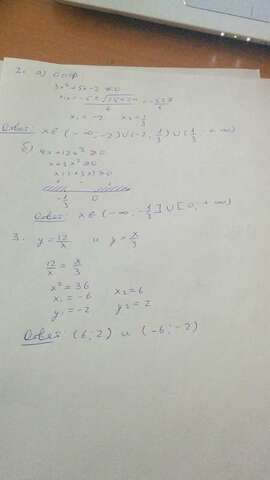 2. а) ООФ
3x² + 5x - 2 ≠ 0
x₁,₂ = (-5 ± √(25+24))/6 = (-5 ± 7)/6
x₁ = -2 x₂ = 1/3
Ответ: x ∈ (-∞; -2) ∪ (-2; 1/3) ∪ (1/3; +∞)
б)
4x + 12x² ≥ 0
x + 3x² ≥ 0
x(1+3x) ≥ 0
+ - +
-1/3 0
Ответ: x ∈ (-∞; -1/3] ∪ [0; +∞)
3. y = 12/x и y = x/3
12/x = x/3
x² = 36
x₁ = -6 x₂ = 6
y₁ = -2 y₂ = 2
Ответ (6; 2) и (-6; -2)